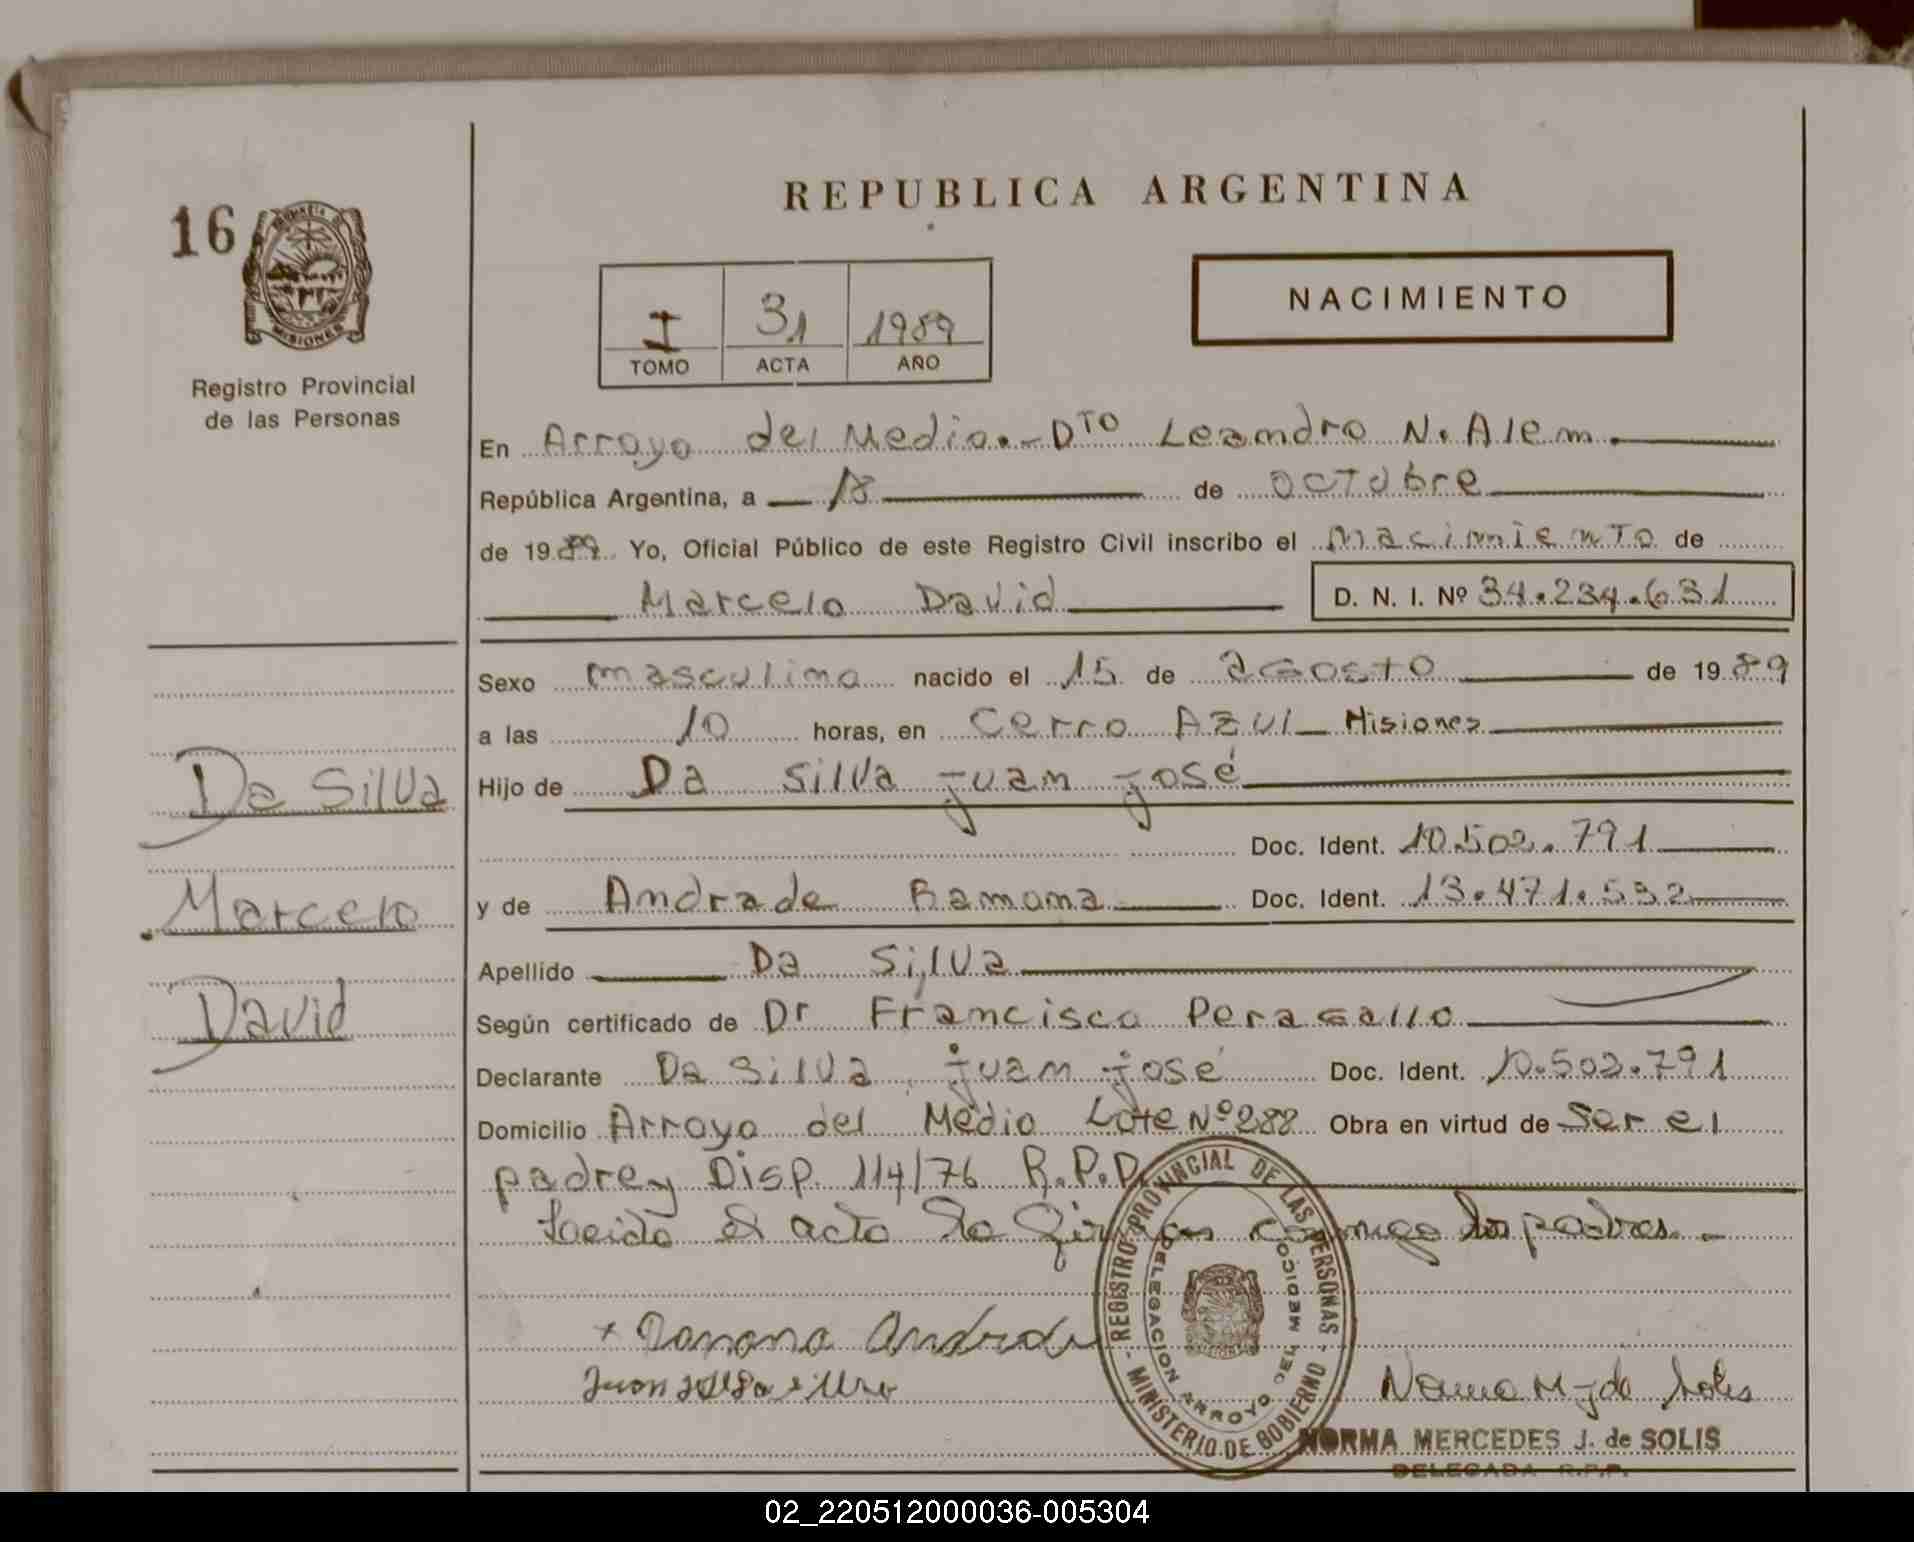 16
PROVINCIA DE
MISIONES
Registro Provincial
de las Personas
REPUBLICA ARGENTINA
I 31 1989
TOMO ACTA AÑO
NACIMIENTO
En Arroyo del Medio.- Dto Leandro N. Alem.
República Argentina, a 18 de octubre
de 1989. Yo, Oficial Público de este Registro Civil inscribo el nacimiento de
Marcelo David D. N. I. Nº 34.234.631
Sexo masculino nacido el 15 de agosto de 1989
a las 10 horas, en Cerro Azul Misiones
Da Silva
Hijo de Da Silva juan josé
Doc. Ident. 10.502.791
Marcelo
y de Andrade Ramona Doc. Ident. 13.471.532
Apellido Da Silva
David
Según certificado de Dr Francisco Peragallo
Declarante Da Silva, juan josé Doc. Ident. 10.502.791
Domicilio Arroyo del Medio Lote Nº 288 Obra en virtud de ser el
padre y Disp. 114/76 R.P.P.
Leido el acto lo firman conmigo los padres.-
+ Ramona Andrade
REGISTRO PROVINCIAL DE LAS PERSONAS - MINISTERIO DE GOBIERNO -
DELEGACION ARROYO DEL MEDIO
Norma M J de Solis
NORMA MERCEDES J. de SOLIS
DELEGADA R.P.P.
02_220512000036-005304